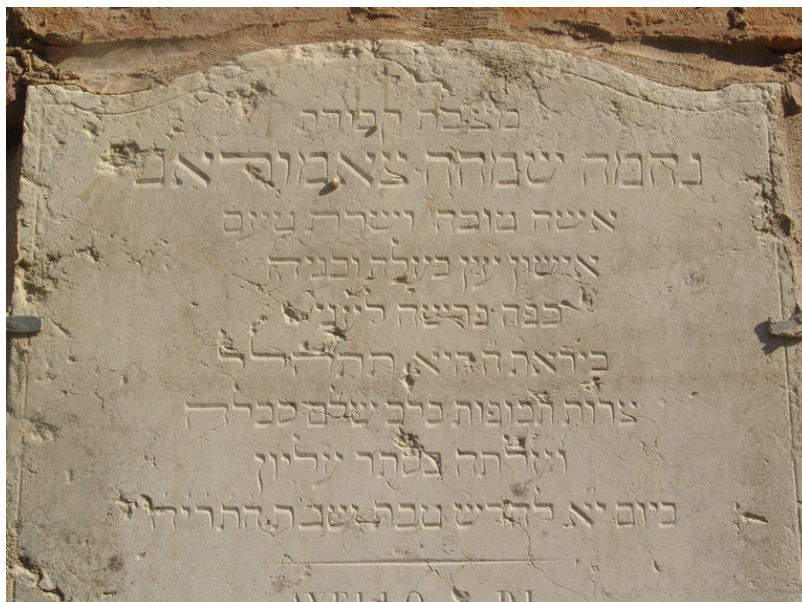 מצבת קבורת
נחמה שמחה צאמוראני
אשה טובה וישרת טעם
אישון עין בעלה ובניה
כפה פרשה לעני
ביראת ה׳ היא תתהלל
צרות תכופות בלב שלם סבלה
ועלתה בסתר עליון
ביום י״א לחדש טבת שנת